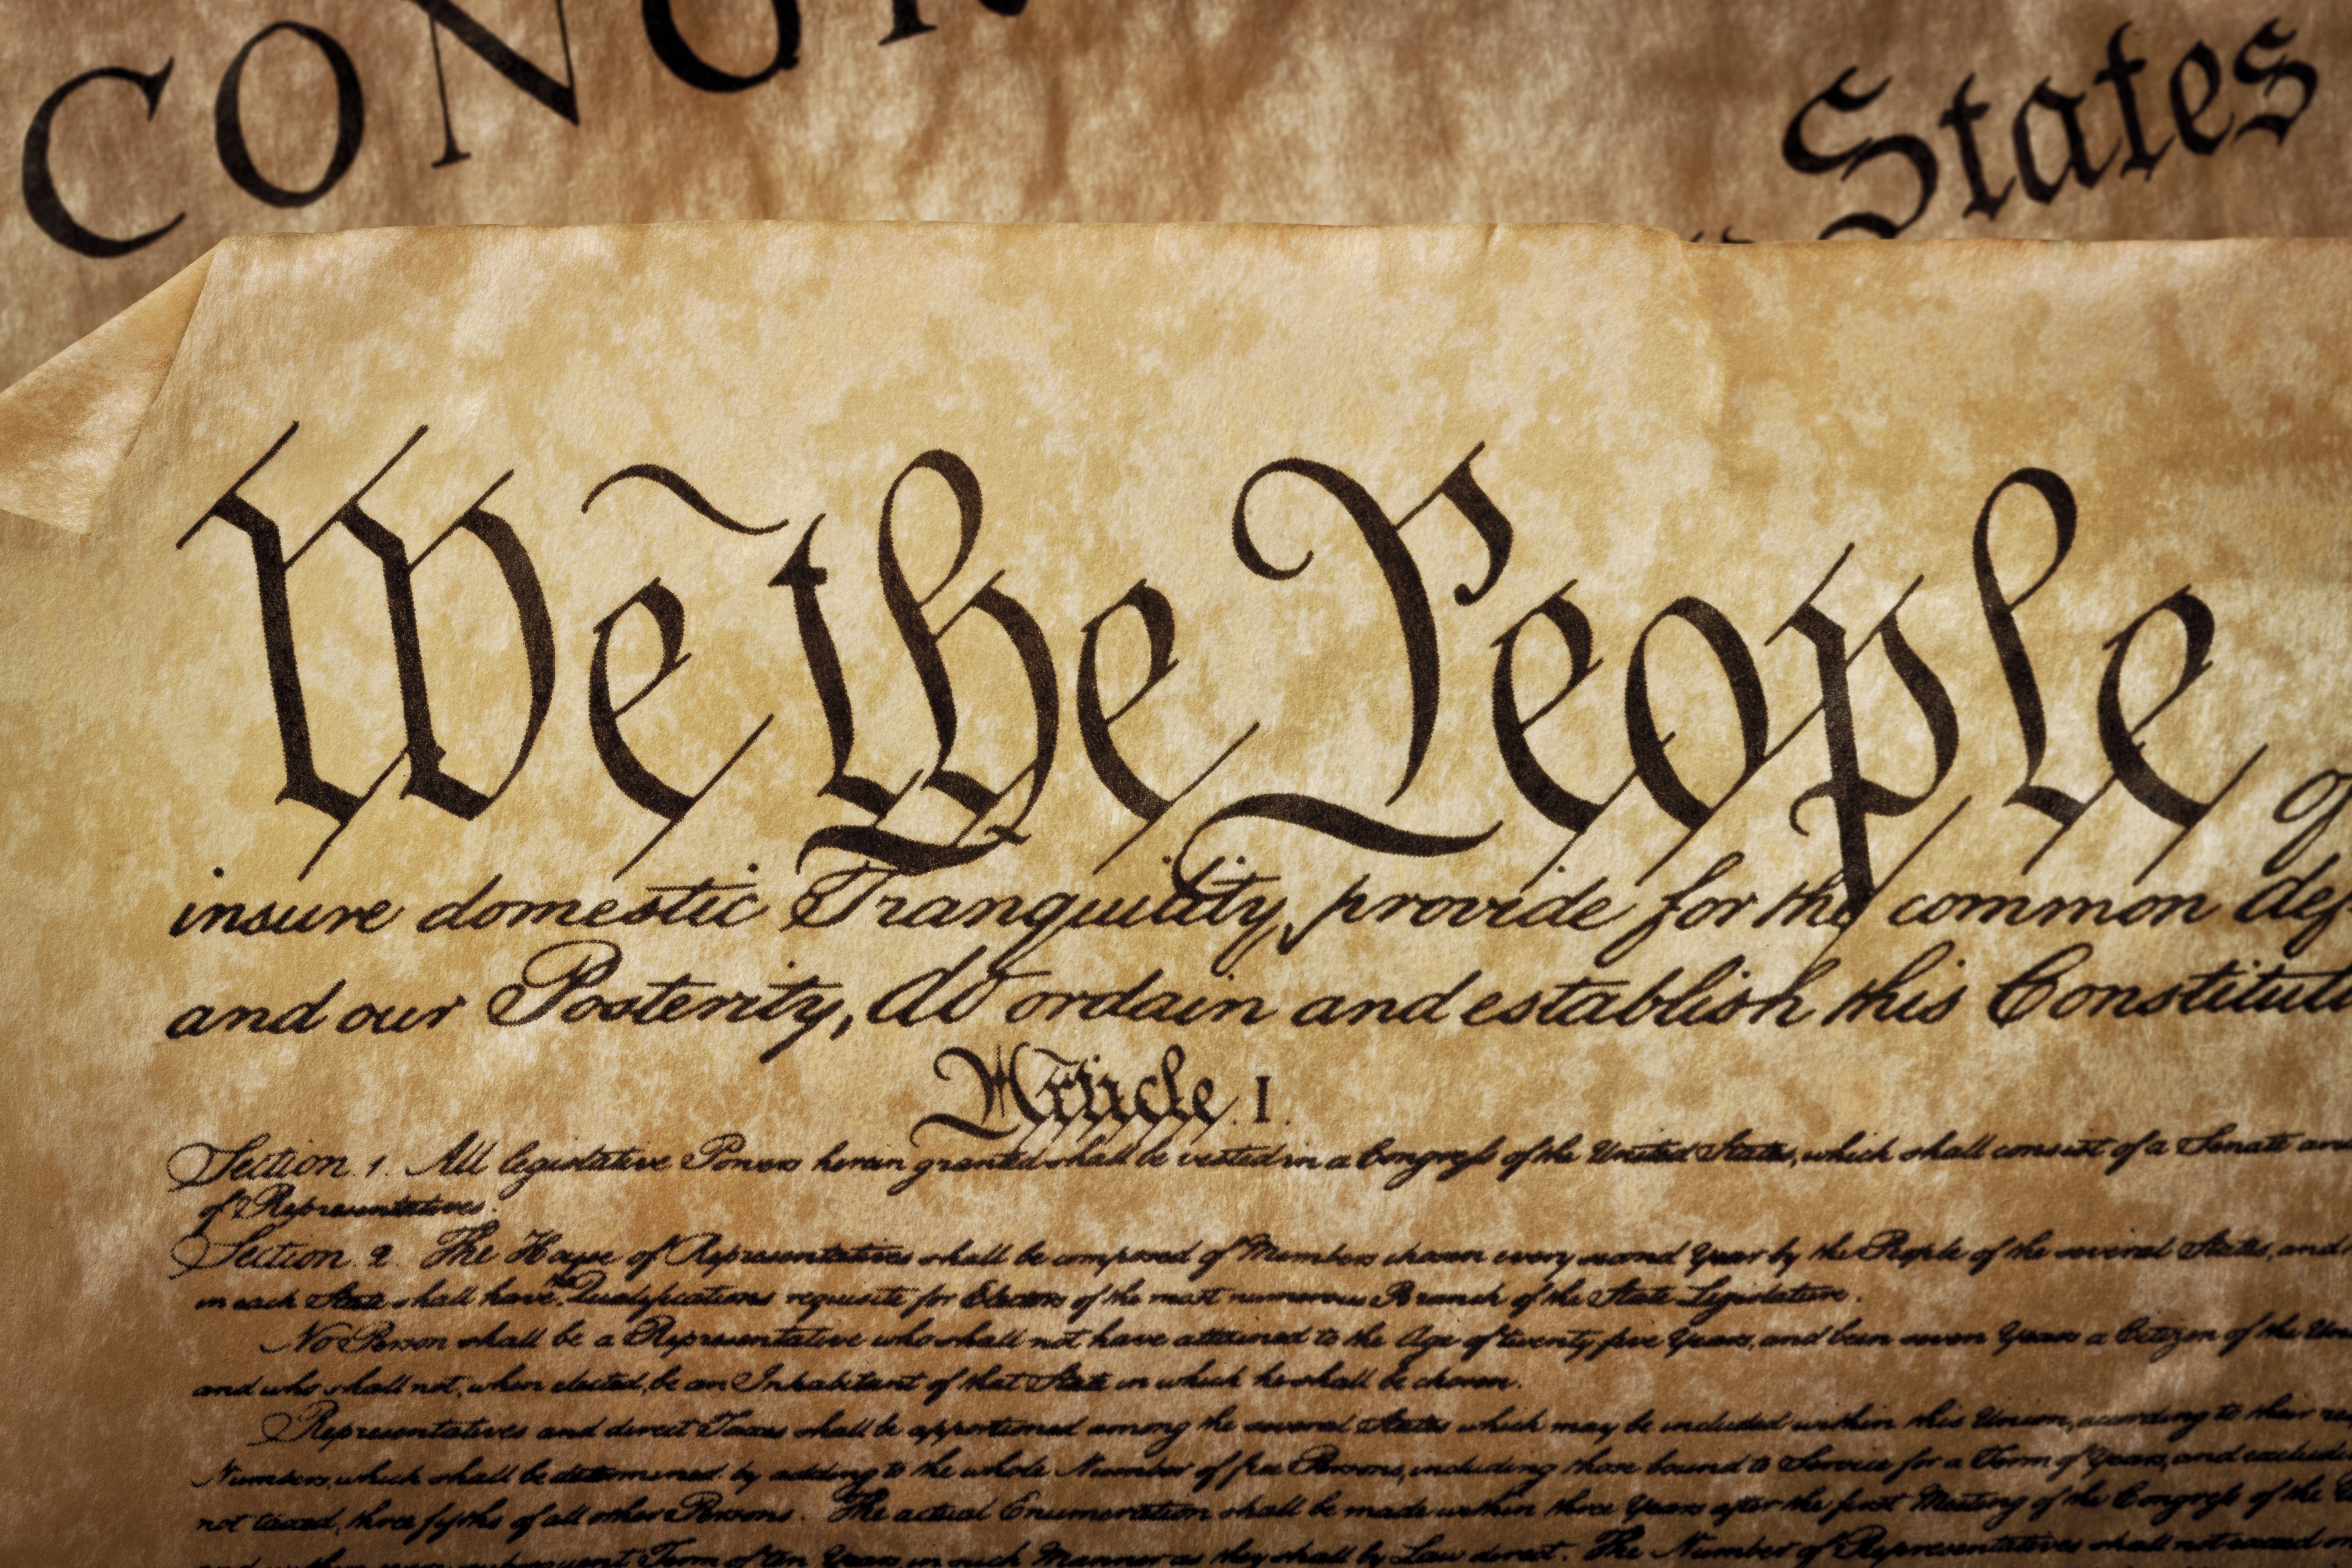 CONGR
States
We the People
of
insure domestic Tranquility, provide for the common def
and our Posterity, do ordain and establish this Constituti
Article. I.
Section. 1. All legislative Powers herein granted shall be vested in a Congress of the United States, which shall consist of a Senate and
of Representatives.
Section. 2. The House of Representatives shall be composed of Members chosen every second Year by the People of the several States, and
in each State shall have the Qualifications requisite for Electors of the most numerous Branch of the State Legislature.
No Person shall be a Representative who shall not have attained to the Age of twenty five Years, and been seven Years a Citizen of the Un
and who shall not, when elected, be an Inhabitant of that State in which he shall be chosen.
Representatives and direct Taxes shall be apportioned among the several States which may be included within this Union, according to their re
Numbers, which shall be determined by adding to the whole Number of free Persons, including those bound to Service for a Term of Years, and excludi
not taxed, three fifths of all other Persons. The actual Enumeration shall be made within three Years after the first Meeting of the Congress of the
and within every subsequent Term of ten Years, in such Manner as they shall by Law direct. The Number of Representatives shall not exceed